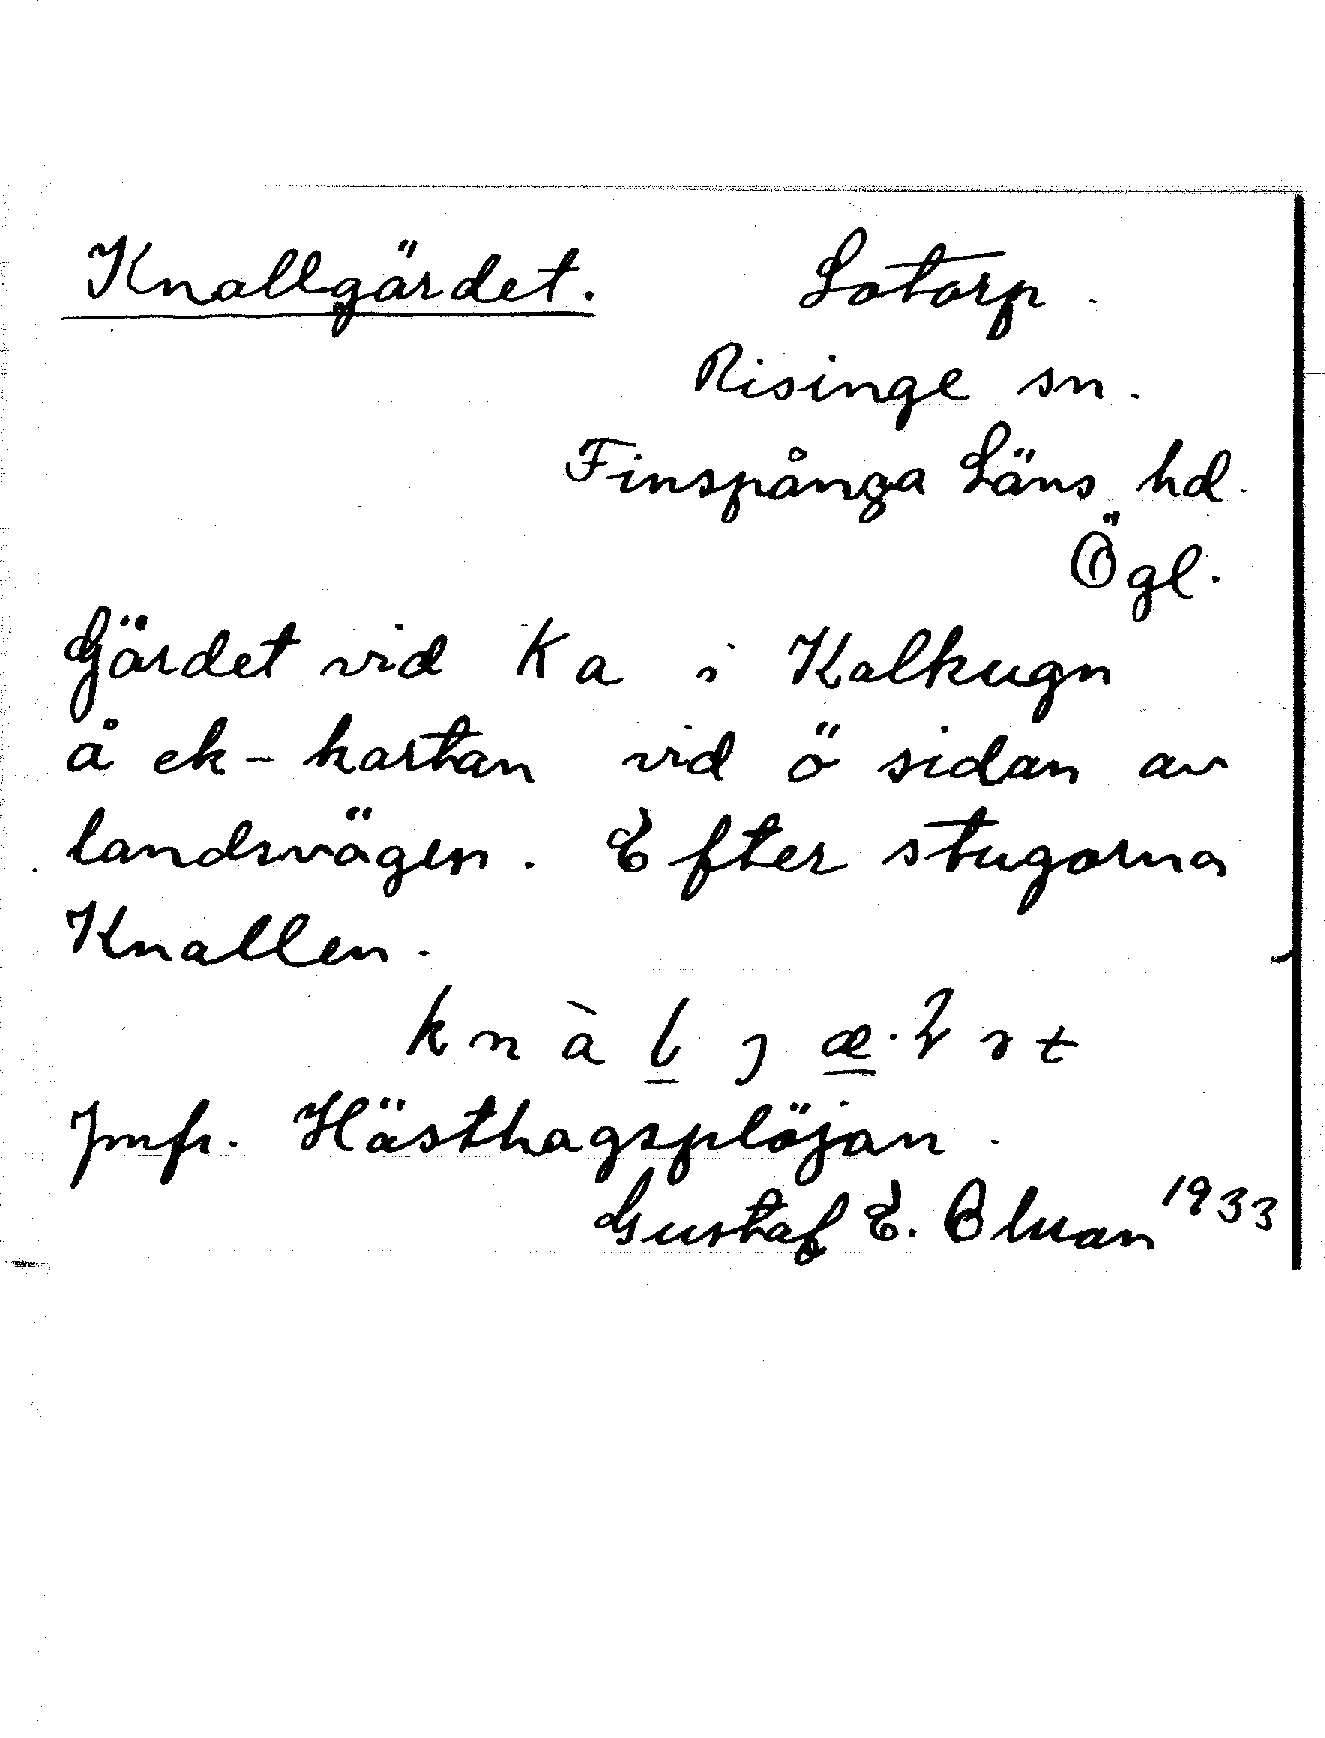 Knallgärdet. Lotorp.
Risinge sn.
Finspånga Läns hd.
Ögl.
Gärdet vid Ka i Kalkugn
å ek-kartan vid ö sidan av
landsvägen. Efter stugorna
Knallen.
Jmfr. Hästhagsplöjan.
Gustaf E. 1933